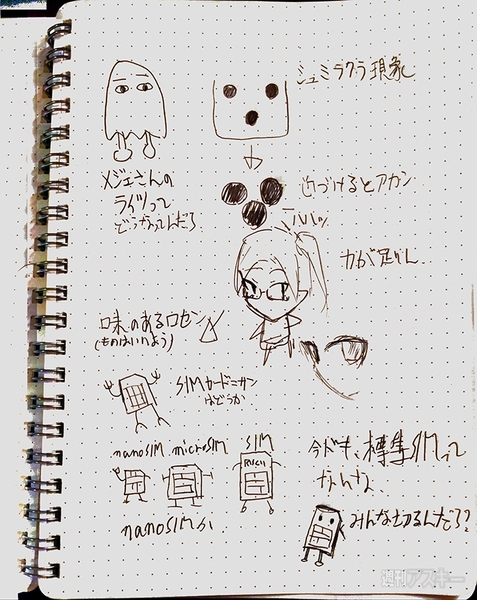 シュミラクラ現象
メジェさんの
ライツって
どうなってんだろ
近づけるとアカン
ハハッ
力が足りん..
味のあるロセン
(ものはいいよう)
SIMカードニサン
はどうか
nanoSIM microSIM SIM
nanoSIMか
今ドキ、標準SIMって
なんなんな、
みんな切るんだろ?
週刊アスキー